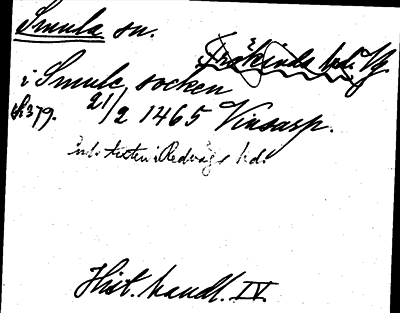 Smula sn. Frökinds hd. Vg
i Smula socken
s. 379. 21/2 1465 Vinsarp.
enl. texten i Redvägs hd.
Hist. handl. IV.